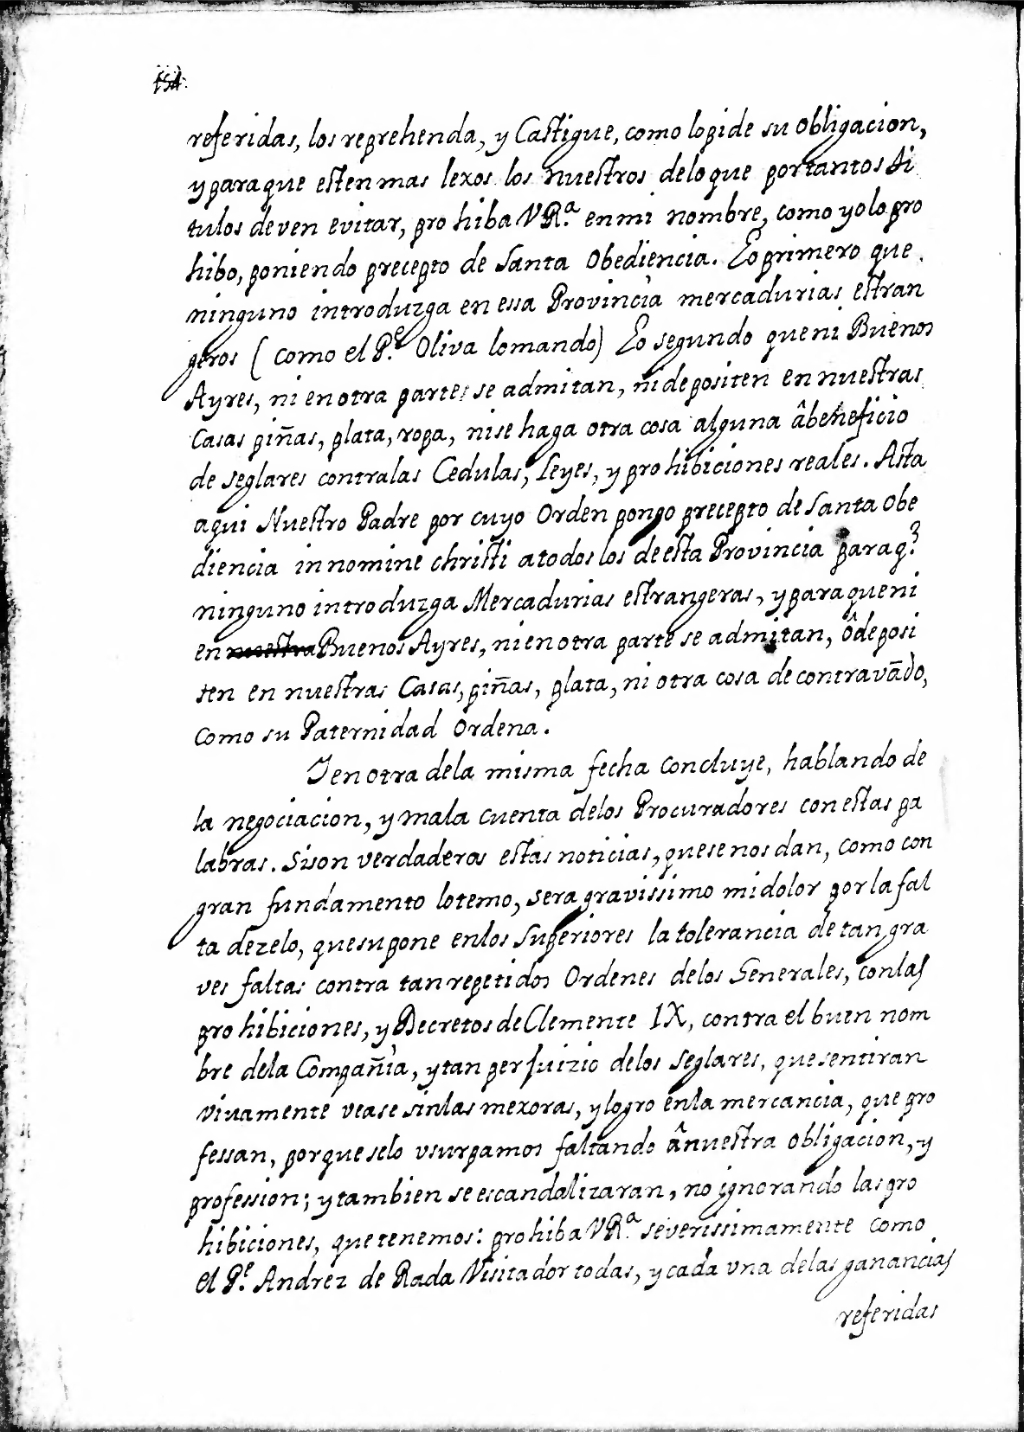 154
referidas, los reprehenda, y Castigue, como lo pide su obligacion,
y para que esten mas lexos los nuestros de lo que por tantos ti
tulos deven evitar, prohiba VRª. en mi nombre, como yo lo pro
hibo, poniendo precepto de Santa Obediencia. Lo primero que
ninguno introduzga en essa Provincia mercadurias estran
geros (como el Pe. Oliva lo mando) Lo segundo que ni Buenos
Ayres, ni en otra parte se admitan, ni depositen en nuestras
Casas piñas, plata, ropa, ni se haga otra cosa alguna â beneficio
de seglares contra las Cedulas, Leyes, y prohibiciones reales. Asta
aqui Nuestro Padre por cuyo Orden pongo precepto de Santa Obe
diencia in nomine christi a todos los de esta Provincia para q.e
ninguno introduzga Mercadurias estrangeras, y para que ni
en nuestra Buenos Ayres, ni en otra parte se admitan, ô deposi
ten en nuestras Casas, piñas, plata, ni otra cosa de contravãdo,
como su Paternidad Ordena.
I en otra de la misma fecha concluye, hablando de
la negociacion, y mala cuenta de los Procuradores con estas pa
labras. Si son verdaderas estas noticias, que se nos dan, como con
gran fundamento lo temo, sera gravissimo mi dolor por la fal
ta de zelo, que supone en los Superiores la tolerancia de tan gra
ves faltas contra tan repetidos Ordenes de los Generales, con las
prohibiciones, y Decretos de Clemente IX, contra el buen nom
bre de la Compañia, y tan perjuizio de los seglares, que sentiran
vivamente vease sin las mexoras, y logro en la mercancia, que pro
fessan, porque se lo vsurpamos faltando â nuestra obligacion, y
profession; y tambien se escandalizaran, no ignorando las pro
hibiciones, que tenemos: prohiba VRª. severissimamente como
el Pe. Andrez de Rada Visitador todas, y cada vna de las ganancias
referidas